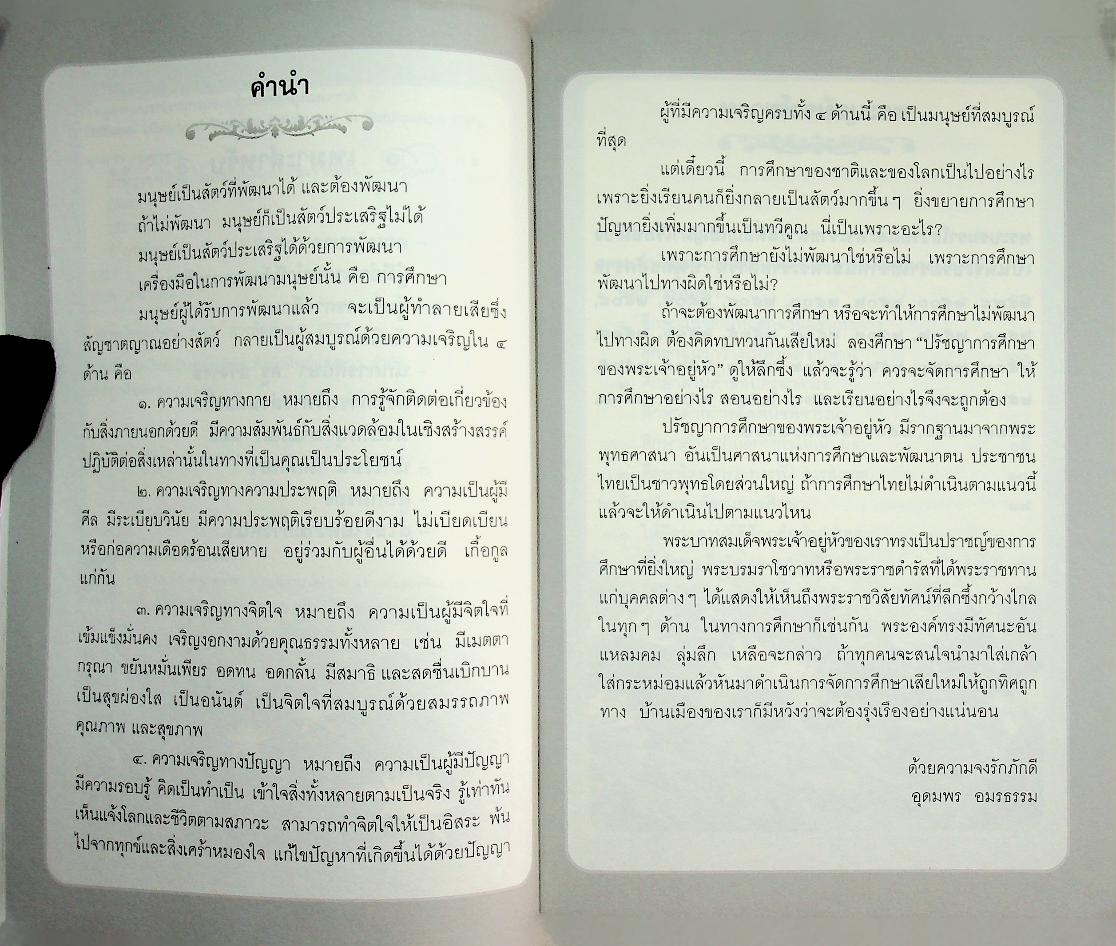 คำนำ
มนุษย์เป็นสัตว์ที่พัฒนาได้ และต้องพัฒนา
ถ้าไม่พัฒนา มนุษย์ก็เป็นสัตว์ประเสริฐไม่ได้
มนุษย์เป็นสัตว์ประเสริฐได้ด้วยการพัฒนา
เครื่องมือในการพัฒนามนุษย์นั้น คือ การศึกษา
มนุษย์ผู้ได้รับการพัฒนาแล้ว จะเป็นผู้ทำลายเสียซึ่ง
สัญชาตญาณอย่างสัตว์ กลายเป็นผู้สมบูรณ์ด้วยความเจริญใน ๔
ด้าน คือ
๑. ความเจริญทางกาย หมายถึง การรู้จักติดต่อเกี่ยวข้อง
กับสิ่งภายนอกด้วยดี มีความสัมพันธ์กับสิ่งแวดล้อมในเชิงสร้างสรรค์
ปฏิบัติต่อสิ่งเหล่านั้นในทางที่เป็นคุณเป็นประโยชน์
๒. ความเจริญทางความประพฤติ หมายถึง ความเป็นผู้มี
ศีล มีระเบียบวินัย มีความประพฤติเรียบร้อยดีงาม ไม่เบียดเบียน
หรือก่อความเดือดร้อนเสียหาย อยู่ร่วมกับผู้อื่นได้ด้วยดี เกื้อกูล
แก่กัน
๓. ความเจริญทางจิตใจ หมายถึง ความเป็นผู้มีจิตใจที่
เข้มแข็งมั่นคง เจริญงอกงามด้วยคุณธรรมทั้งหลาย เช่น มีเมตตา
กรุณา ขยันหมั่นเพียร อดทน อดกลั้น มีสมาธิ และสดชื่นเบิกบาน
เป็นสุขผ่องใส เป็นอนันต์ เป็นจิตใจที่สมบูรณ์ด้วยสมรรถภาพ
คุณภาพ และสุขภาพ
๔. ความเจริญทางปัญญา หมายถึง ความเป็นผู้มีปัญญา
มีความรอบรู้ คิดเป็นทำเป็น เข้าใจสิ่งทั้งหลายตามเป็นจริง รู้เท่าทัน
เห็นแจ้งโลกและชีวิตตามสภาวะ สามารถทำจิตใจให้เป็นอิสระ พ้น
ไปจากทุกข์และสิ่งเศร้าหมองใจ แก้ไขปัญหาที่เกิดขึ้นได้ด้วยปัญญา
ผู้ที่มีความเจริญครบทั้ง ๔ ด้านนี้ คือ เป็นมนุษย์ที่สมบูรณ์
ที่สุด
แต่เดี๋ยวนี้ การศึกษาของชาติและของโลกเป็นไปอย่างไร
เพราะยิ่งเรียนคนก็ยิ่งกลายเป็นสัตว์มากขึ้นๆ ยิ่งขยายการศึกษา
ปัญหายิ่งเพิ่มมากขึ้นเป็นทวีคูณ นี่เป็นเพราะอะไร?
เพราะการศึกษายังไม่พัฒนาใช่หรือไม่ เพราะการศึกษา
พัฒนาไปทางผิดใช่หรือไม่?
ถ้าจะต้องพัฒนาการศึกษา หรือจะทำให้การศึกษาไม่พัฒนา
ไปทางผิด ต้องคิดทบทวนกันเสียใหม่ ลองศึกษา “ปรัชญาการศึกษา
ของพระเจ้าอยู่หัว” ดูให้ลึกซึ้ง แล้วจะรู้ว่า ควรจะจัดการศึกษา ให้
การศึกษาอย่างไร สอนอย่างไร และเรียนอย่างไรจึงจะถูกต้อง
ปรัชญาการศึกษาของพระเจ้าอยู่หัว มีรากฐานมาจากพระ
พุทธศาสนา อันเป็นศาสนาแห่งการศึกษาและพัฒนาตน ประชาชน
ไทยเป็นชาวพุทธโดยส่วนใหญ่ ถ้าการศึกษาไทยไม่ดำเนินตามแนวนี้
แล้วจะให้ดำเนินไปตามแนวไหน
พระบาทสมเด็จพระเจ้าอยู่หัวของเราทรงเป็นปราชญ์ของการ
ศึกษาที่ยิ่งใหญ่ พระบรมราโชวาทหรือพระราชดำรัสที่ได้พระราชทาน
แก่บุคคลต่างๆ ได้แสดงให้เห็นถึงพระราชวิสัยทัศน์ที่ลึกซึ้งกว้างไกล
ในทุกๆ ด้าน ในทางการศึกษาก็เช่นกัน พระองค์ทรงมีทัศนะอัน
แหลมคม ลุ่มลึก เหลือจะกล่าว ถ้าทุกคนจะสนใจนำมาใส่เกล้า
ใส่กระหม่อมแล้วหันมาดำเนินการจัดการศึกษาเสียใหม่ให้ถูกทิศถูก
ทาง บ้านเมืองของเราก็มีหวังว่าจะต้องรุ่งเรืองอย่างแน่นอน
ด้วยความจงรักภักดี
อุดมพร อมรธรรม